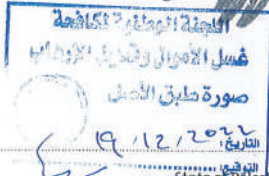 اللجنة الوطنية لمكافحة
غسل الأموال وتمويل الإرهاب
صورة طبق الأصل
التاريخ: 19/12/2022
التوقيع: